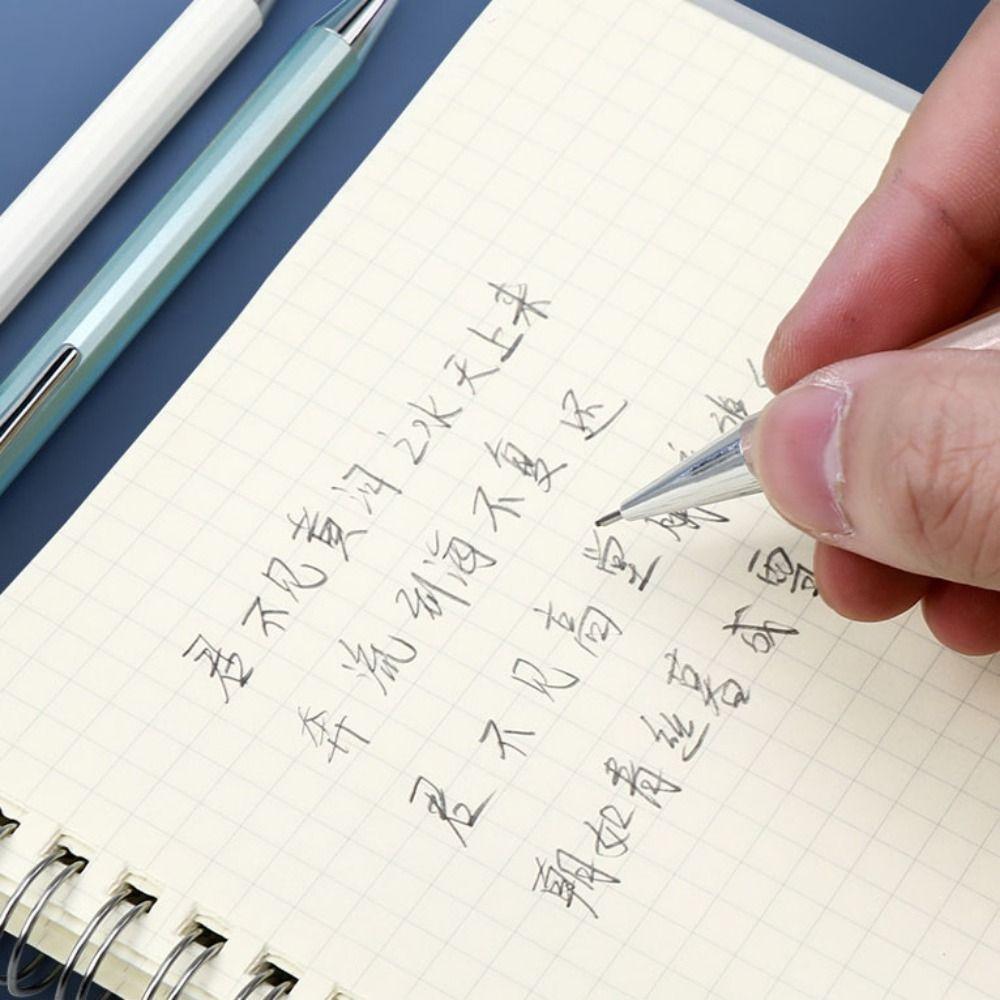 君不见黄河之水天上来
奔流到海不复还
君不见高堂
朝如青丝暮成雪